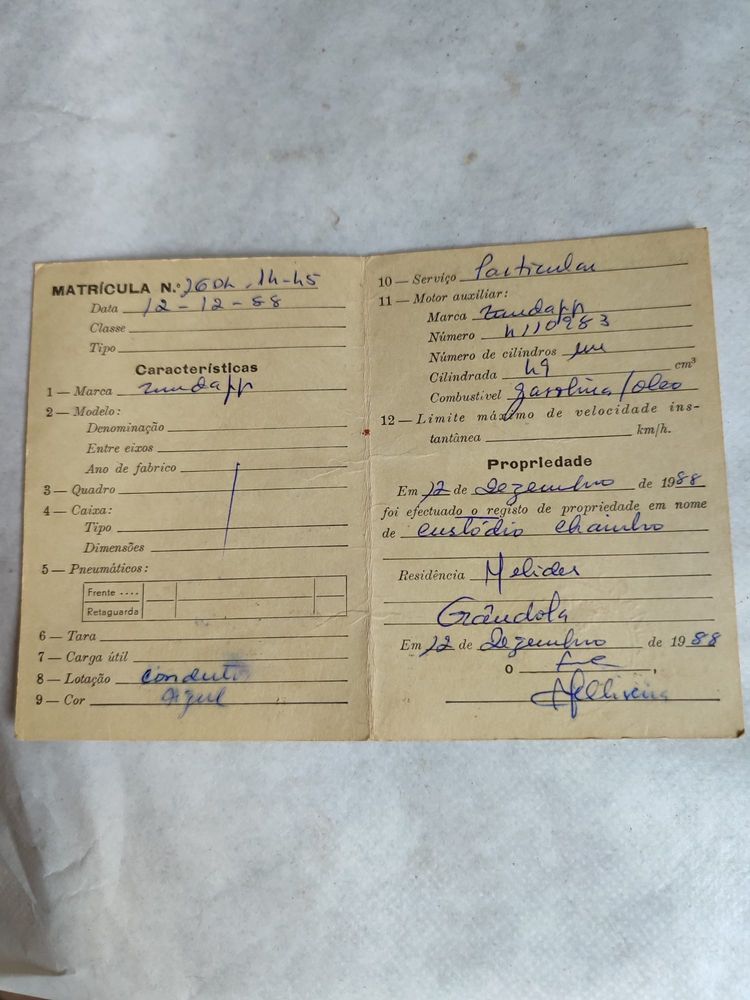 MATRÍCULA N.º 2GDL . 14-45
Data 12-12-88
Classe
Tipo
Características
1 — Marca zundapp
2 — Modelo:
Denominação
Entre eixos
Ano de fabrico
3 — Quadro
4 — Caixa:
Tipo
Dimensões
5 — Pneumáticos:
Frente ....
Retaguarda
6 — Tara
7 — Carga útil
8 — Lotação Condutor
9 — Cor Azul
10 — Serviço Particular
11 — Motor auxiliar:
Marca zundapp
Número 4110983
Número de cilindros um
Cilindrada 49 cm³
Combustível gasolina/oleo
12 — Limite máximo de velocidade ins-
tantânea km/h.
Propriedade
Em 12 de Dezembro de 1988
foi efectuado o registo de propriedade em nome
de Custódio Chainho
Residência Melides
Grândola
Em 12 de Dezembro de 1988
O ,